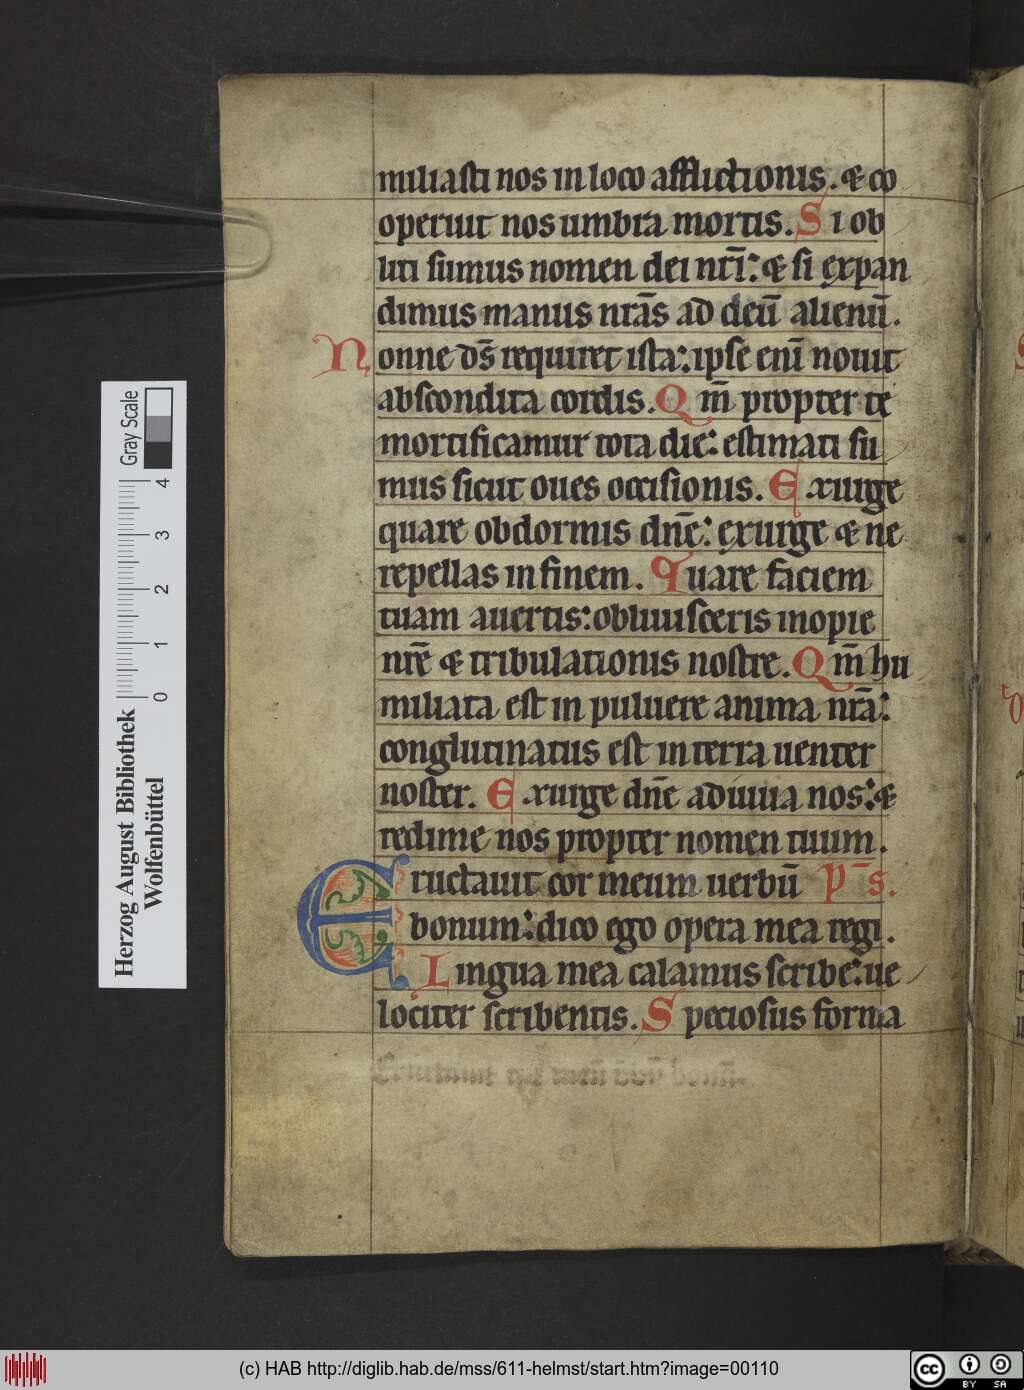 miliasti nos in loco afflictionis. & co
operuit nos umbra mortis. Si ob
liti sumus nomen dei nr̄i: & si expan
dimus manus nr̄as ad deū alienū.
Nonne ds̄ requiret ista: ipse enī nouit
abscondita cordis. Qm̄ propter te
mortificamur tota die: estimati su
mus sicut oues occisionis. Exurge
quare obdormis dn̄e: exurge & ne
repellas in finem. Quare faciem
tuam auertis: obliuisceris inopie
nr̄e & tribulationis nostre. Qm̄ hu
miliata est in puluere anima nr̄a:
conglutinatus est in terra uenter
noster. Exurge dn̄e adiuua nos: &
redime nos propter nomen tuum.
Eructauit cor meum uerbū p̄s.
bonum: dico ego opera mea regi.
Lingua mea calamus scribe: ue
lociter scribentis. Speciosus forma
Herzog August Bibliothek
Wolfenbüttel
0 1 2 3 4
Gray Scale
(c) HAB http://diglib.hab.de/mss/611-helmst/start.htm?image=00110
cc BY SA